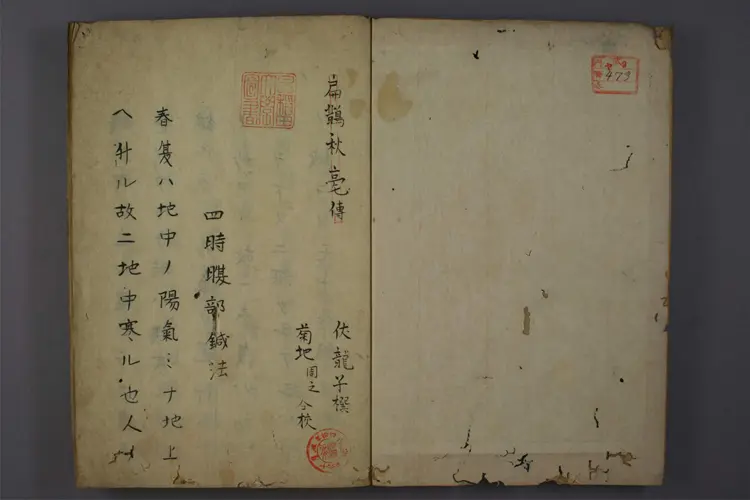 473
扁鵲秋亳傳
伏龍子撰
菊地周之合校
四時腹部鍼法
春夏ハ地中ノ陽氣ミナ地上
ヘ升ル故ニ地中寒ル也人